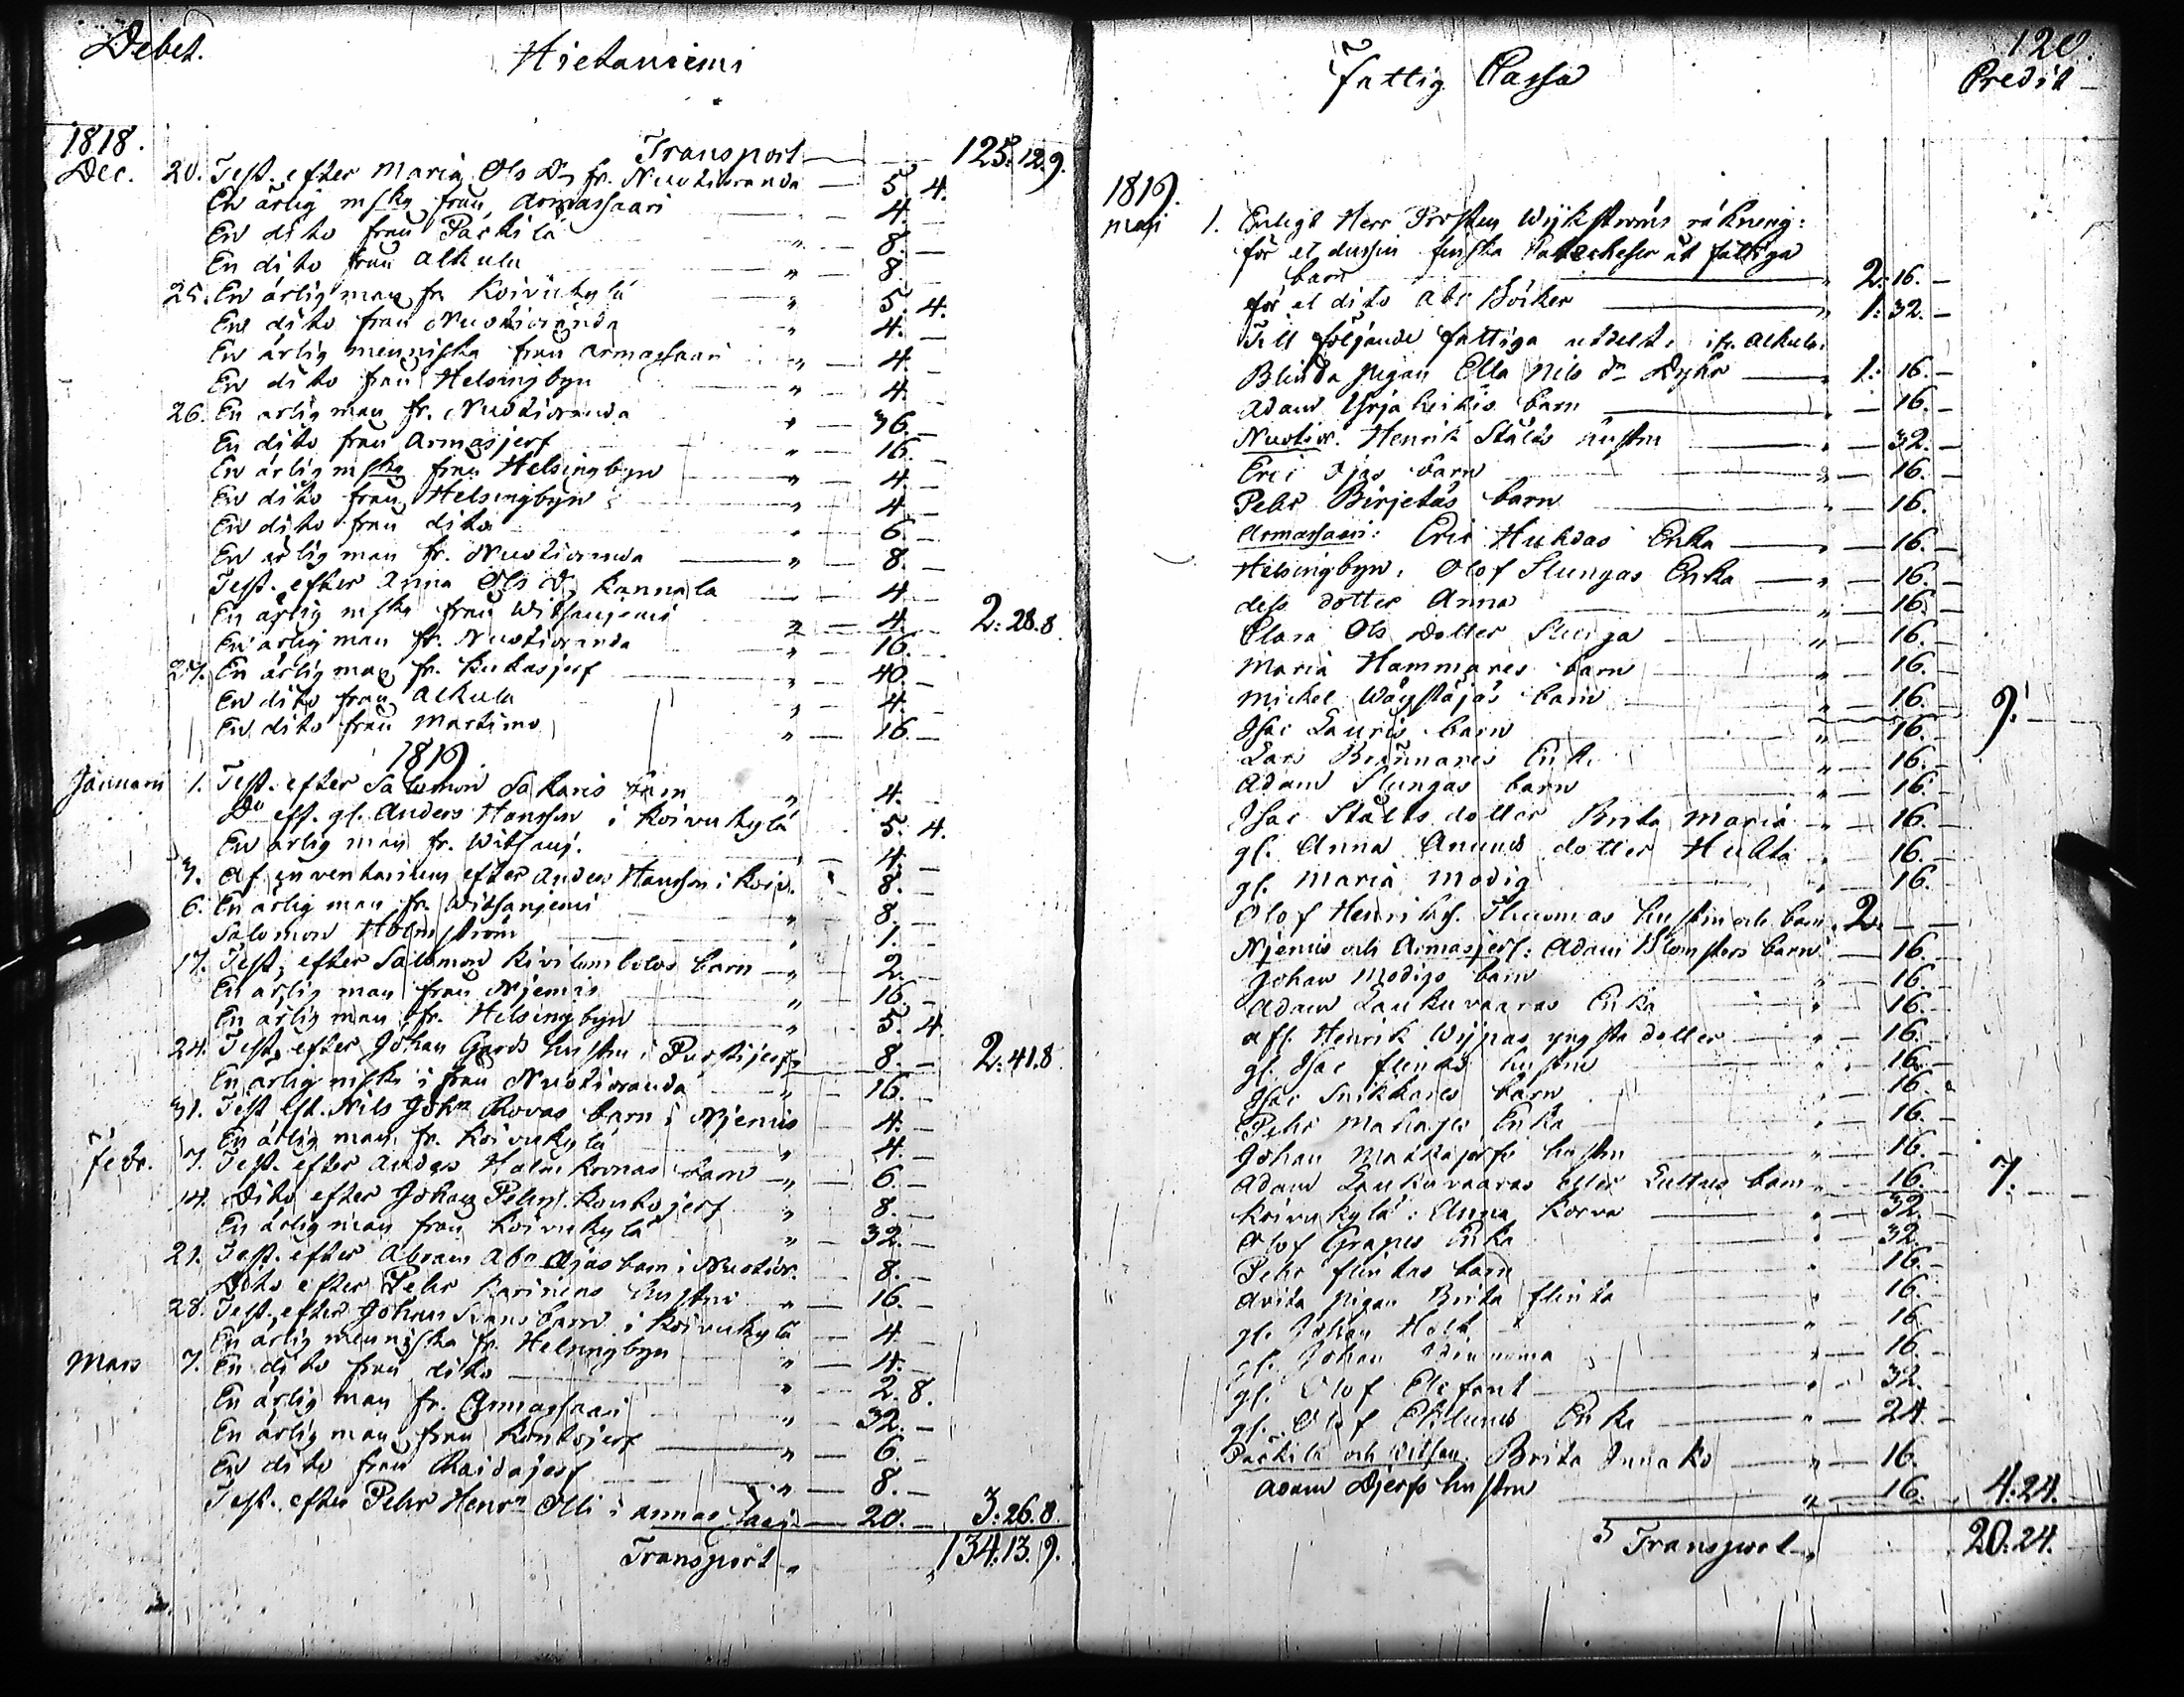 Debet.
Hietaniemi
1818.
Transport 125: 12. 9.
Dec. 20. Test. efter Maria Ols Dr fr. Nuotioranda — 5. 4.
En ärlig mska från Armassaari — 4. —
En dito från Päckilä " — 8. —
En dito från Alkula " — 8. —
25. En ärlig man fr. Koivukylä " — 5. 4.
En dito från Nuotioranda " — 4. —
En ärlig menniska från Armassaari " — 4. —
En dito från Helsingbyn " — 4. —
26. En ärlig man fr. Nuotioranda " — 36. —
En dito från Armasjerf " — 16. —
En ärlig mska från Helsingbyn " — 4. —
En dito från Helsingbyn " — 4. —
En dito från dito " — 6. —
En ärlig man fr. Nuotioranda " — 8. —
Test. efter Anna Ols Dr Kannala — 4. —
En ärlig mska från Witsaniemi " — 4. — 2: 28. 8.
En ärlig man fr. Nuotioranda " — 16. —
27. En ärlig man fr. Kukasjerf " — 40. —
En dito från Alkula " — 4. —
En dito från Martimo " — 16. —
1819.
Januarii 1. Test. efter Salomon Sakaris barn " 4. —
Do eft. gl. Anders Hansson i Koivukylä 5. 4.
En ärlig man fr. Witsanj. — 4. —
3. Af inventarium efter Anders Hansson i Koiv. " 8. —
6. En ärlig man fr. Witsanjemi " 8. —
Salomon Holmström " 1. —
17. Test. efter Salomon barn " — 2. —
En ärlig man från Njemis " — 16. —
En ärlig man fr. Helsingbyn " — 5. 4.
24. Test. efter Johan Gards hustru i Puostijerf " 8. — 2: 41. 8.
En ärlig mska ifrån Nuotioranda " — 16. —
31. Test. eft. Nils Johns Rovas barn i Njemis — 4. —
En ärlig man fr. Koivukylä " — 4. —
Febr. 7. Test. efter Anders barn " — 6. —
14. Dito efter Johan Pehrs. Kontojerf " 8. —
En ärlig man från Koivukylä " — 32. —
21. Test. efter Abram Abr. Ojas barn i Nuotior. — 8. —
Dito efter Pehr Karinens hustru " — 16. —
28. Test. efter Johan barn i Koivukylä — 4. —
En ärlig menniska fr. Helsingbyn " — 4. —
Mars 7. En dito från dito " — 2. 8.
En ärlig man fr. Armassaari " — 32. —
En ärlig man från Kontojerf " — 6. —
En dito från Raidajerf " — 8. —
Test. efter Pehr Henrs Olli i Armassaari — 20. — 3: 26. 8.
Transport " 134. 13. 9.
120.
Fattig Cassa
Credit
1819.
Maj 1. Enligt Herr Prosten Wijkströms räkning:
för et dussin finska Katecheser åt fattiga
barn " 2: 16. —
för et dito Abc Böcker " 1: 32. —
Till följande fattiga utdelt. ifr. Alkula.
Blinda pigan Ella Nils dr Dyhr " 1: 16. —
Adam barn " — 16. —
Nuotior. Henrik Ståls hustru " — 32. —
Eric Ojas barn " — 16. —
Pehr Birjetäs barn " — 16. —
Armassaari: Eric Huhdas Enka " — 16. —
Helsingbyn. Olof Slungas Enka " — 16. —
dess dotter Anna " — 16. —
Clara Ols dotter Slunga " — 16. —
Maria Hammares barn — 16. —
Michel barn " — 16. — 9. —
Isac Lauris barn " — 16. —
Lars Brännares Enk. " 16. —
Adam Slungas barn " — 16. —
Isac Ståls dotter Brita Maria " — 16. —
gl. Anna Anunds dotter Huhta " 16. —
gl. Maria Modig " 16. —
Olof Henrikss. Thuomas hustru och barn " 2. — —
Njemis och Armasjerf: Adam Blomsters barn — 16. —
Johan Modigs barn " — 16. —
Adam Laukuvaaras Enka " — 16. —
afl. Henrik yngsta dotter " — 16. —
gl. Isac Flinkas hustru " — 16. —
Isac Snikkares barn " 16. —
Pehr Enka " — 16. —
Johan hustru " — 16. —
Adam Laukuvaaras barn " — 16. — 7. — —
Koivukylä: Anna Korva " — 32. —
Olof Grapes Enka " — 32. —
Pehr Flinkas barn " — 16. —
pigan Brita Flinka " 16. —
gl. Johan Holt " 16. —
gl. Johan " 16. —
gl. Olof Elefant " — 32. —
gl. Olof Eklunds Enka " — 24. —
Päckilä och Witsan. Brita " — 16. —
Adam Djerfs hustru " — 16. — 4: 24. —
Transport " 20: 24. —